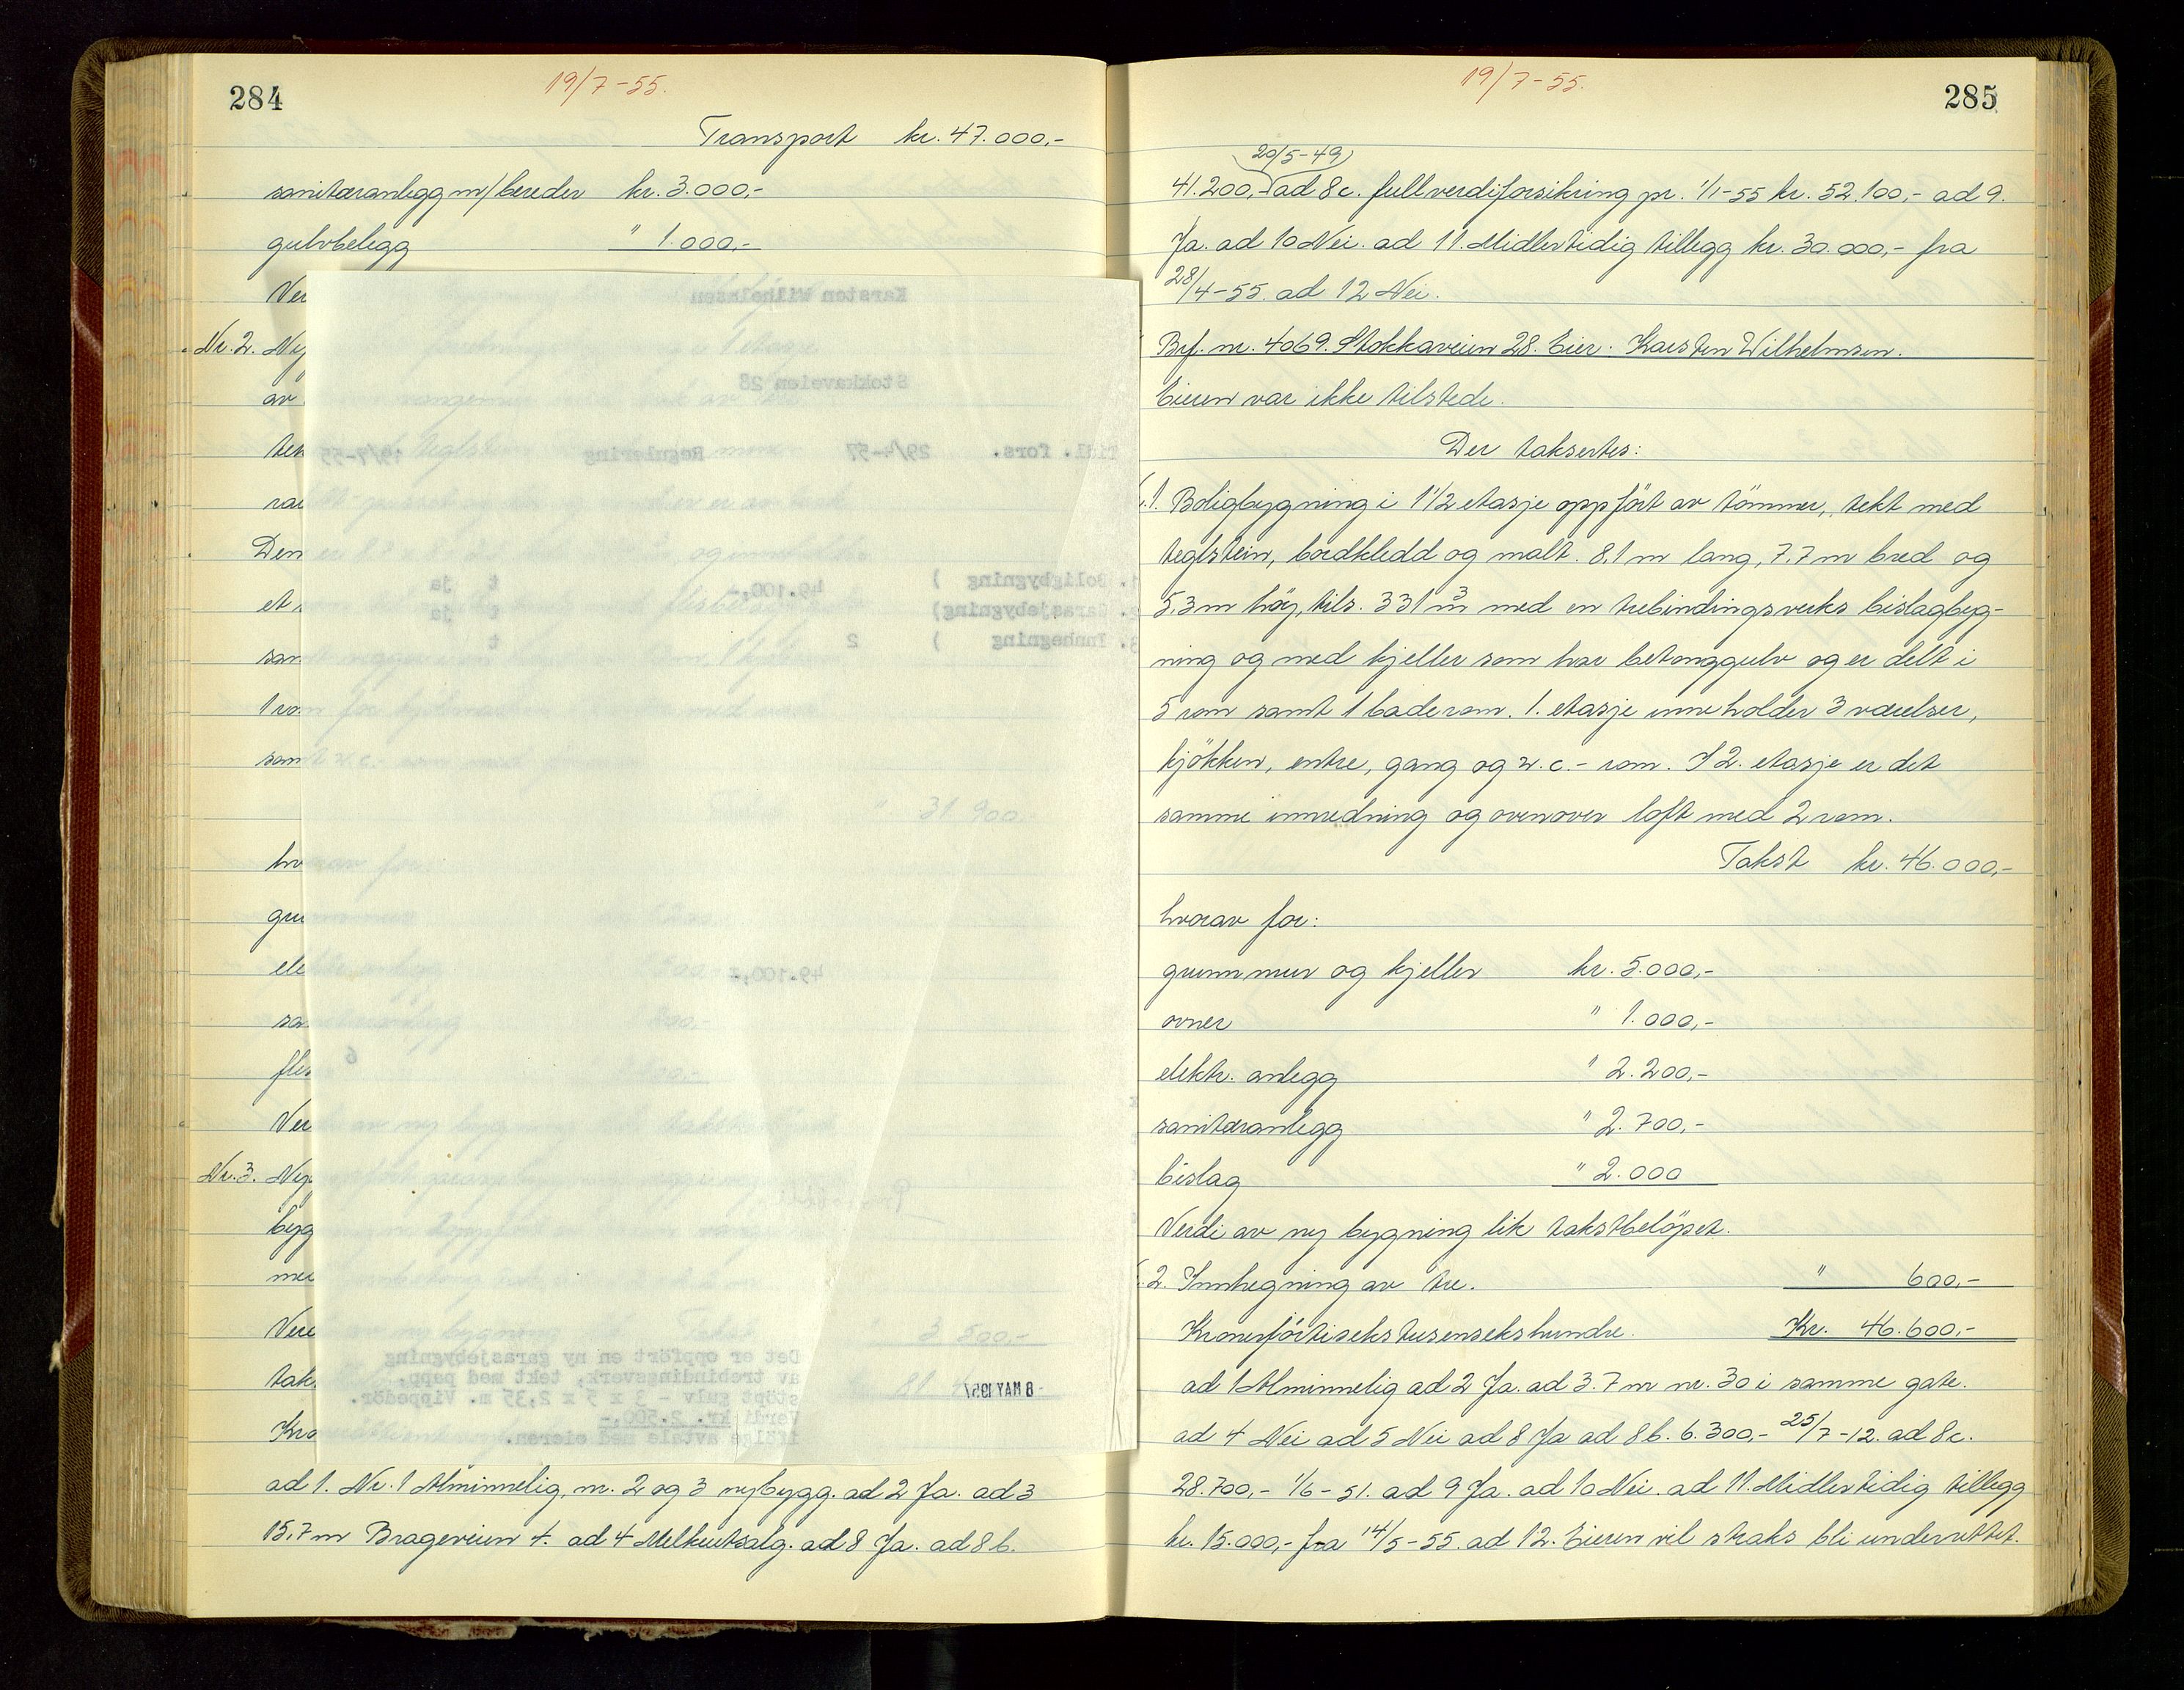 284
19/7-55.
Transport kr. 47.000,-
sanitæranlegg m/bereder kr. 3.000,-
gulvbelegg " 1.000,-
Ver
Nr. 2. Ny
av
rai
Den
et
1 ro
sam
hv
gru
ele
sa
flis
Ver
Nr. 3. Ny
byg
med
tak
Kro
31 900
3 500,-
Karsten Wilhelmsen
Stokkaveien 28
Tidl. fors. 29/4-57 Regulering 19/7-55
1. Boligbygning ) 49.100,- t ja
2. Garasjebygning) t ja
3. Innhegning ) 2 t
49.100,-
6
Det er oppført en ny garasjebygning
av trebindingsverk, tekt med papp,
støpt gulv - 3 x 5 x 2,35 m. Vippedör.
Verdi kr. 2.500,-
ifølge avtale med eieren.
8 MAY 1957
ad 1. Nr. 1 Alminnelig, nr. 2 og 3 nybygg. ad 2 Ja. ad 3
15,7 m Brageveien 4. ad 4 Melkeutsalg. ad 8 Ja. ad 8 b.
285
19/7-55.
20/5-49
41.200,- ad 8c. fullverdiforsikring pr. 1/1-55 kr. 52.100,- ad 9.
Ja. ad 10 Nei. ad 11. Midlertidig tillegg kr. 30.000,- fra
28/4-55. ad 12 Nei.
Brf. nr. 4069. Stokkaveien 28. Eier: Karsten Wilhelmsen.
Eieren var ikke tilstede.
Der taksertes:
1. Boligbygning i 1 1/2 etasje oppført av tömmer, tekt med
teglstein, bordkledd og malt. 8,1 m lang, 7,7 m bred og
5,3 m høy, tils. 331 m3 med en trebindingsverks bislagbyg-
ning og med kjeller som har betonggulv og er delt i
5 rom samt 1 baderom. 1. etasje inneholder 3 værelser,
kjökken, entre, gang og w.c.- rom. I 2. etasje er det
samme innredning og ovenover loft med 2 rom.
Takst kr. 46.000,-
hvorav for:
grunnmur og kjeller kr. 5.000,-
ovner " 1.000,-
elektr. anlegg " 2.200,-
sanitæranlegg " 2.700,-
bislag " 2.000
Verdi av ny bygning lik takstbelöpet.
2. Innhegning av tre. " 600,-
Kronerförtisekstusensekshundre. Kr. 46.600,-
ad 1 Alminnelig ad 2 Ja. ad 3. 7 m nr. 30 i samme gate.
ad 4 Nei ad 5 Nei ad 8 Ja ad 8 b. 6.300,- 25/7-12. ad 8c.
28.700,- 1/6-51. ad 9 Ja. ad 10 Nei. ad 11. Midlertidig tillegg
kr. 15.000,- fra 14/5-55. ad 12. Eieren vil straks bli underrettet.